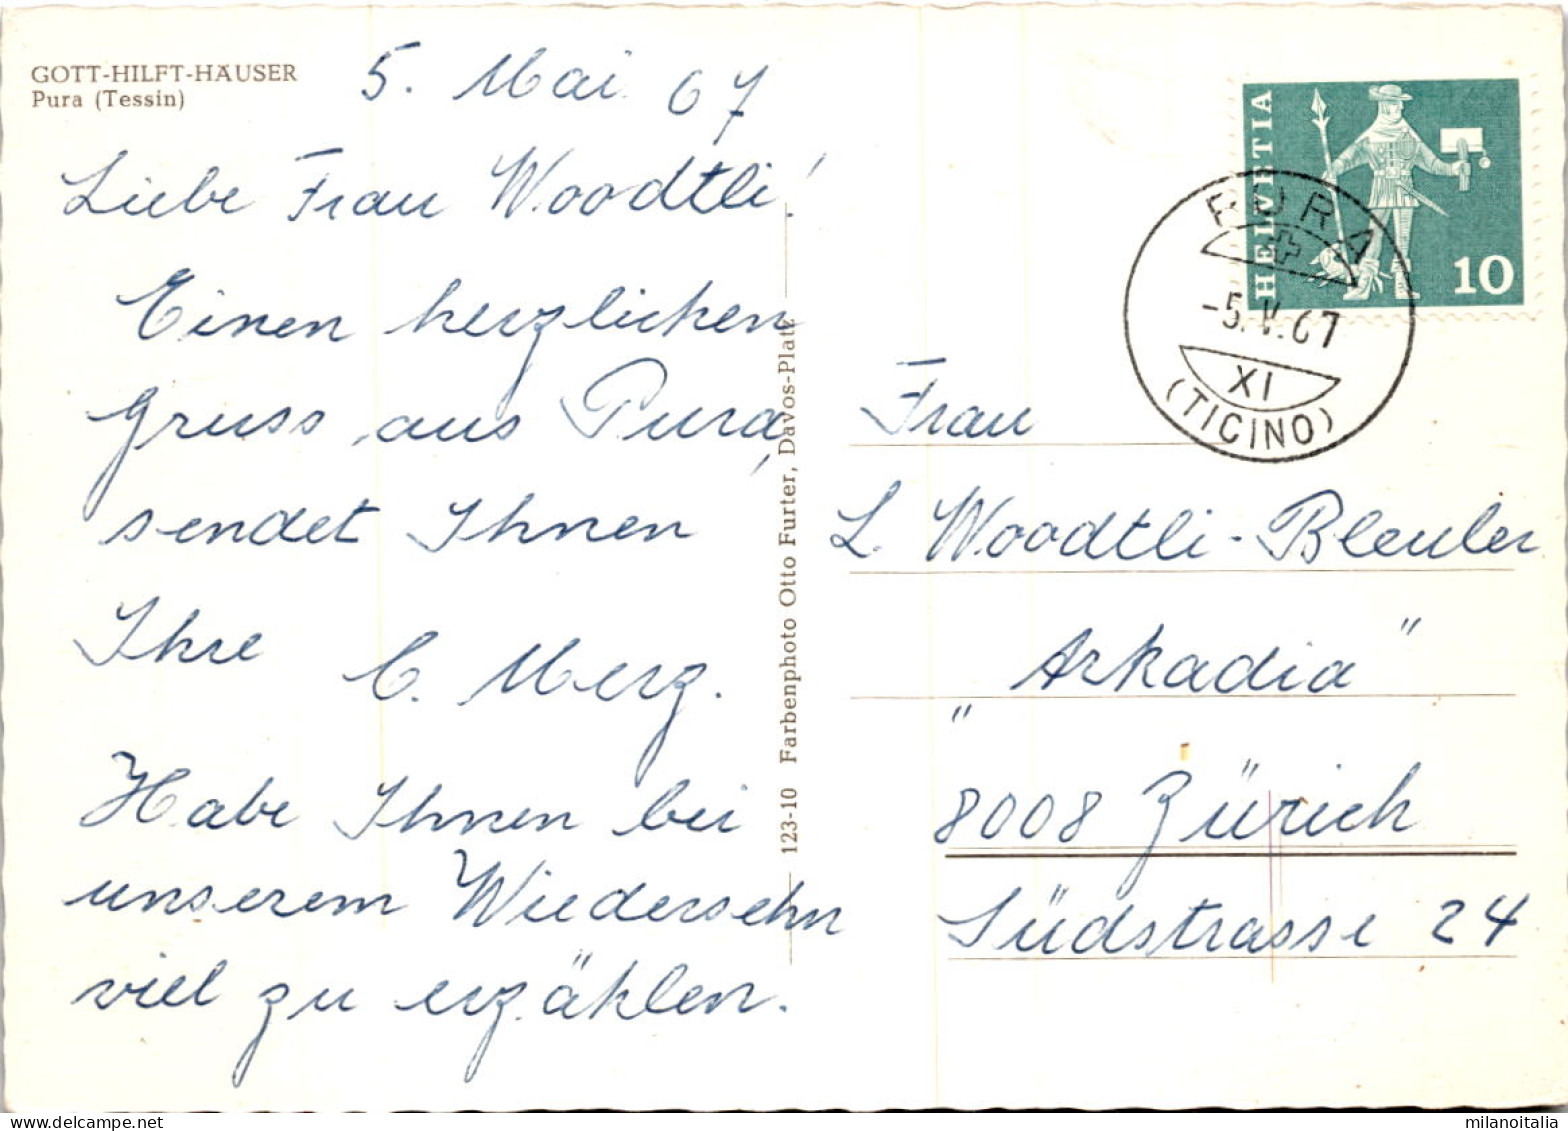 GOTT-HILFT-HÄUSER
Pura (Tessin)
5. Mai 67
Liebe Frau Woodtli!
Einen herzlichen
Gruss aus Pura,
sendet Ihnen
Ihre C. Merz.
Habe Ihnen bei
unserem Wiedersehn
viel zu erzählen.
123-10 Farbenphoto Otto Furter, Davos-Platz
HELVETIA
10
PURA
-5.V.67
XI
(TICINO)
Frau
L. Woodtli-Bleuler
"Arkadia"
8008 Zürich
Südstrasse 24
milanoitalia